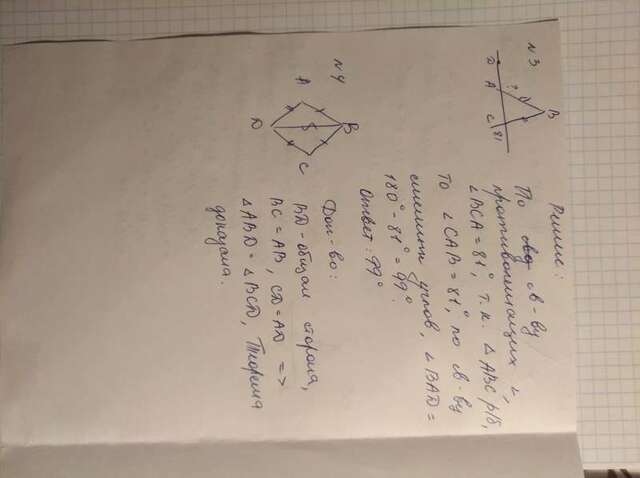 N3
D
A
?
B
C
81
Решение:
По св-ву
противолежащих ∠,
∠BCA = 81°, т.к. △ABC р/б,
то ∠CAB = 81°, по св-ву
смежных углов, ∠BAD =
180° - 81° = 99°.
Ответ: 99°
N4
A
D
B
C
Док-во:
BD - общая сторона,
BC = AB, CD = AD =>
△ABD = △BCD, Теорема
доказана.